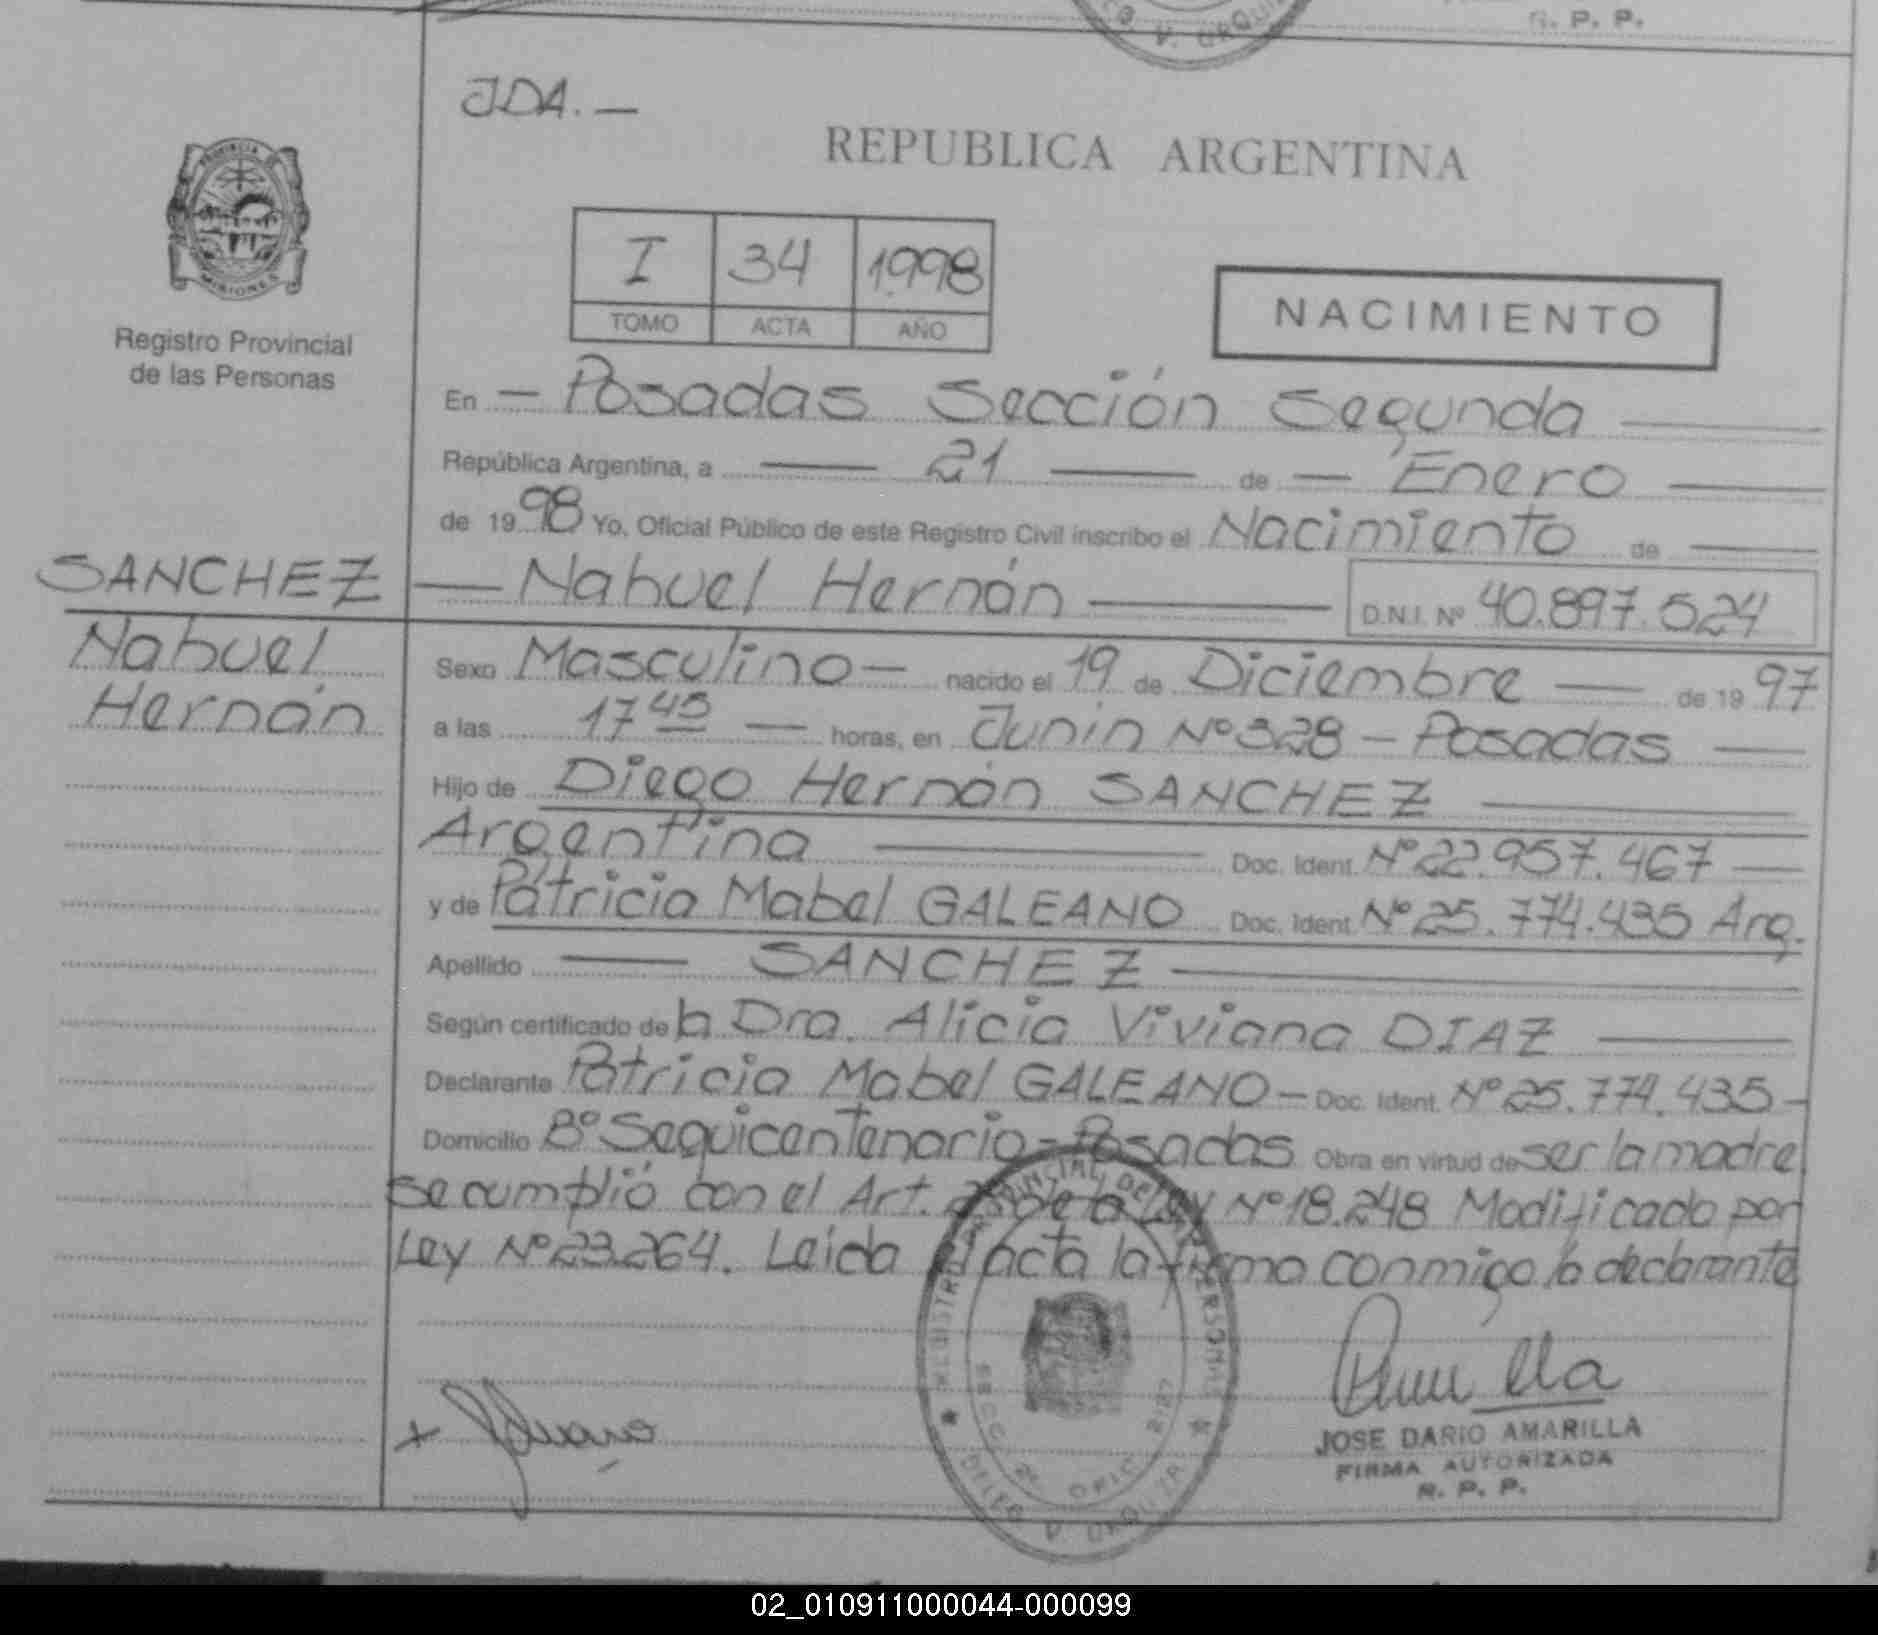 G. P. P.
V. URQUIZ
JDA. —
REPUBLICA ARGENTINA
PROVINCIA DE
MISIONES
Registro Provincial
de las Personas
I 34 1998
TOMO ACTA AÑO
NACIMIENTO
En — Posadas Sección Segunda —
República Argentina, a — 21 — de — Enero —
de 1998 Yo, Oficial Público de este Registro Civil inscribo el Nacimiento de —
SANCHEZ — Nahuel Hernán — D.N.I. Nº 40.897.524
Nahuel
Hernán
Sexo Masculino — nacido el 19 de Diciembre — de 1997
a las 17 45 — horas, en Junín Nº 328 — Posadas —
Hijo de Diego Hernán SANCHEZ —
Argentina — Doc. Ident. Nº 22.957.467 —
y de Patricia Mabel GALEANO Doc. Ident. Nº 25.774.435 Arg.
Apellido — SANCHEZ —
Según certificado de la Dra. Alicia Viviana DIAZ —
Declarante Patricia Mabel GALEANO — Doc. Ident. Nº 25.774.435 —
Domicilio Bº Sequicentenario — Posadas Obra en virtud de ser la madre
se cumplió con el Art. de la Ley Nº 18.248 Modificado por
Ley Nº 23.264. Leída el acta la firma conmigo la declarante
REGISTRO PROVINCIAL DE LAS PERSONAS
SECC. 2ª OFIC.
DELEG V. URQUIZA
JOSE DARIO AMARILLA
FIRMA AUTORIZADA
R. P. P.
02_010911000044-000099